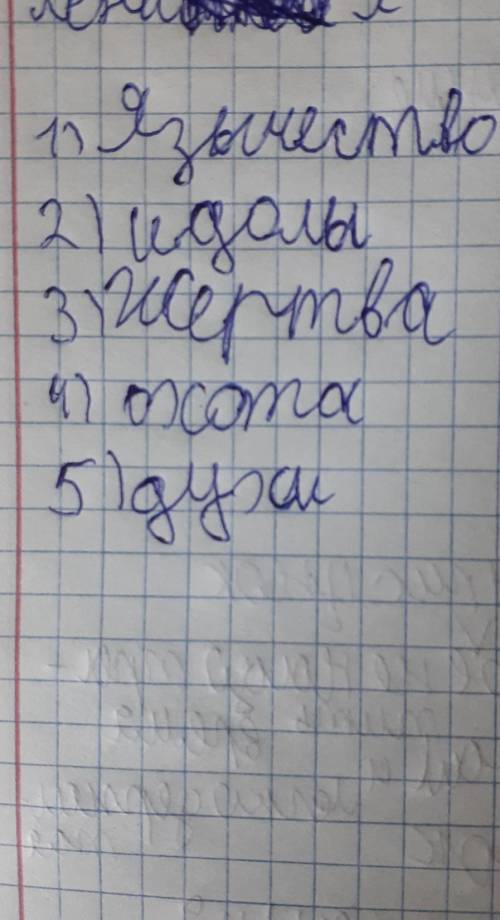 1) Язычество
2) идолы
3) Жертва
4) охота
5) духи